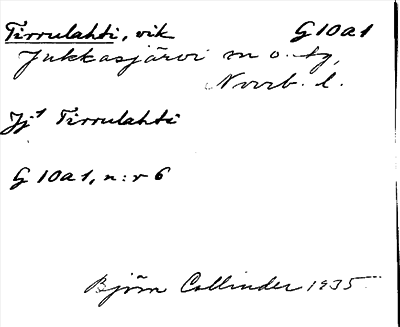 Tirrulahti, vik G10a1
Jukkasjärvi sn o. tg,
Norrb. l.
Jj¹ Tirrulahti
G 10a1, n:r 6
Björn Collinder 1935